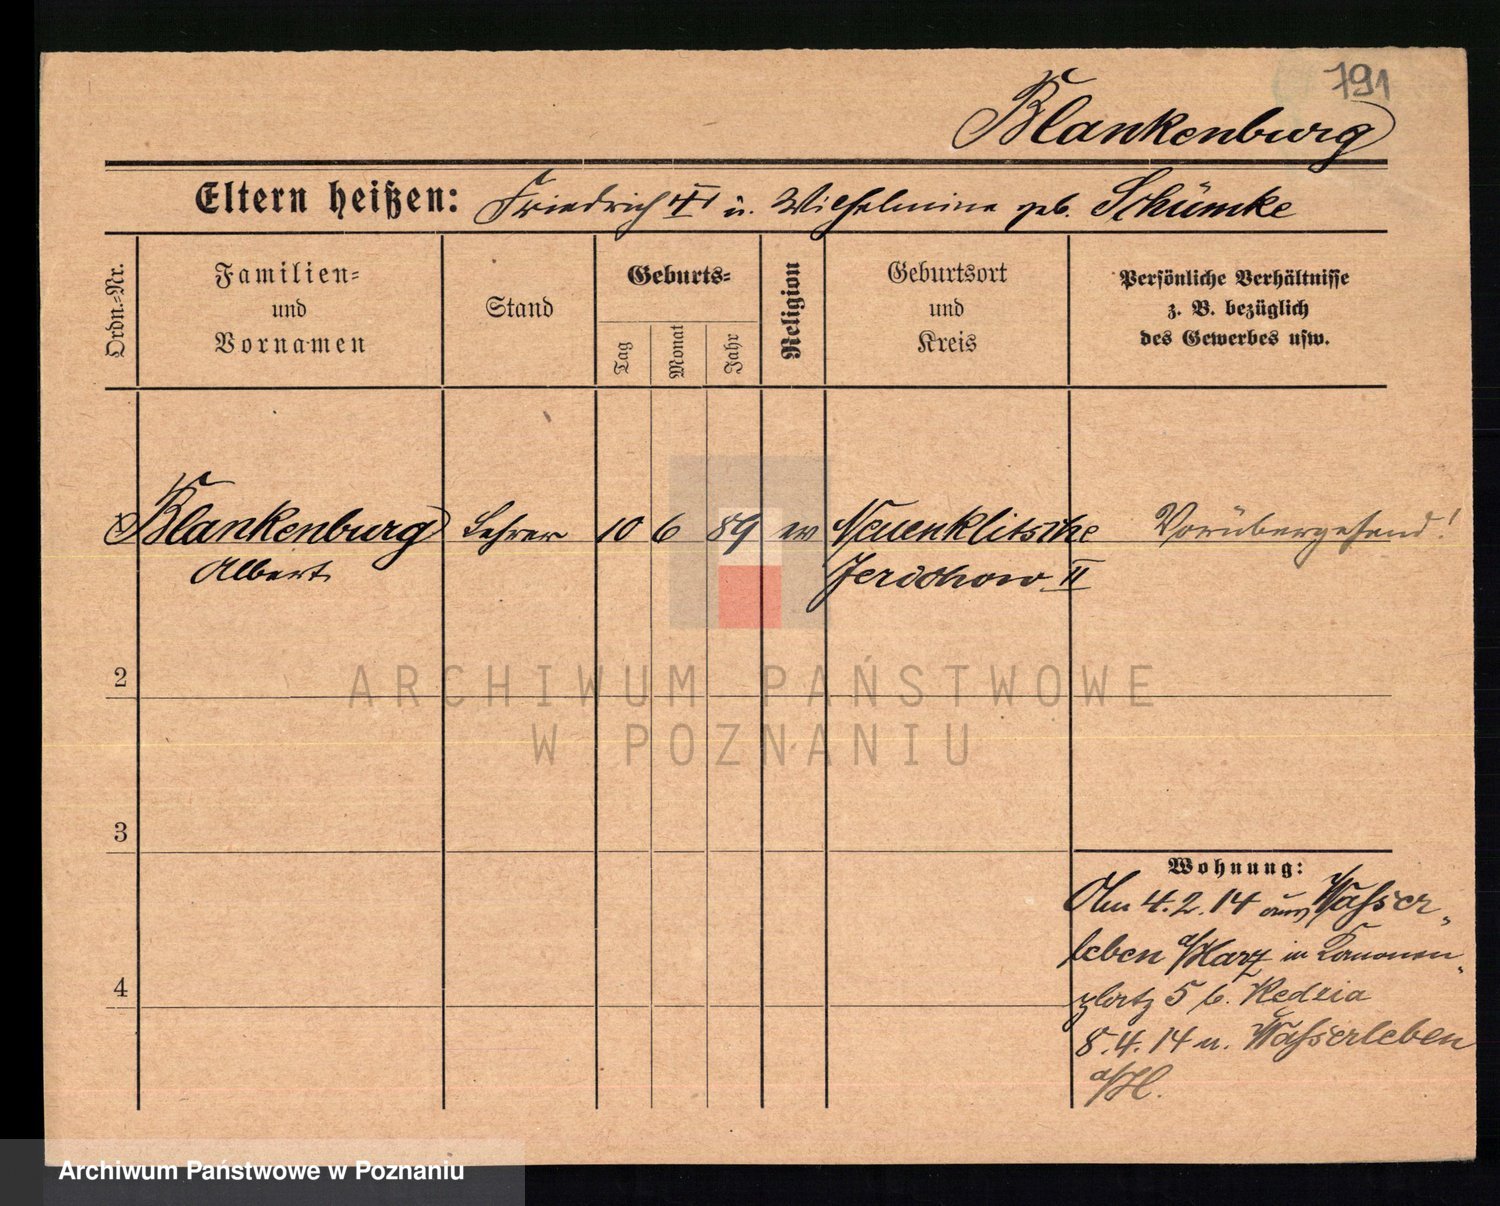 791
Blankenburg
Eltern heißen: Friedrich u. Wilhelmine geb. Schümke
Ordn.=Nr.
Familien=
und
Vornamen
Stand
Geburts=
Tag
Monat
Jahr
Religion
Geburtsort
und
Kreis
Persönliche Verhältnisse
z. B. bezüglich
des Gewerbes usw.
Blankenburg Lehrer 10 6 89 ev Neuenklitsche Vorübergehend!
Albert Jerichow II
2
3
4
Wohnung:
Am 4.2.14 aus Wasser-
leben a/Harz in Kanonen-
platz 5 b. Kedzia
8.4.14 n. Wasserleben
a/H.
ARCHIWUM PAŃSTWOWE
W POZNANIU
Archiwum Państwowe w Poznaniu